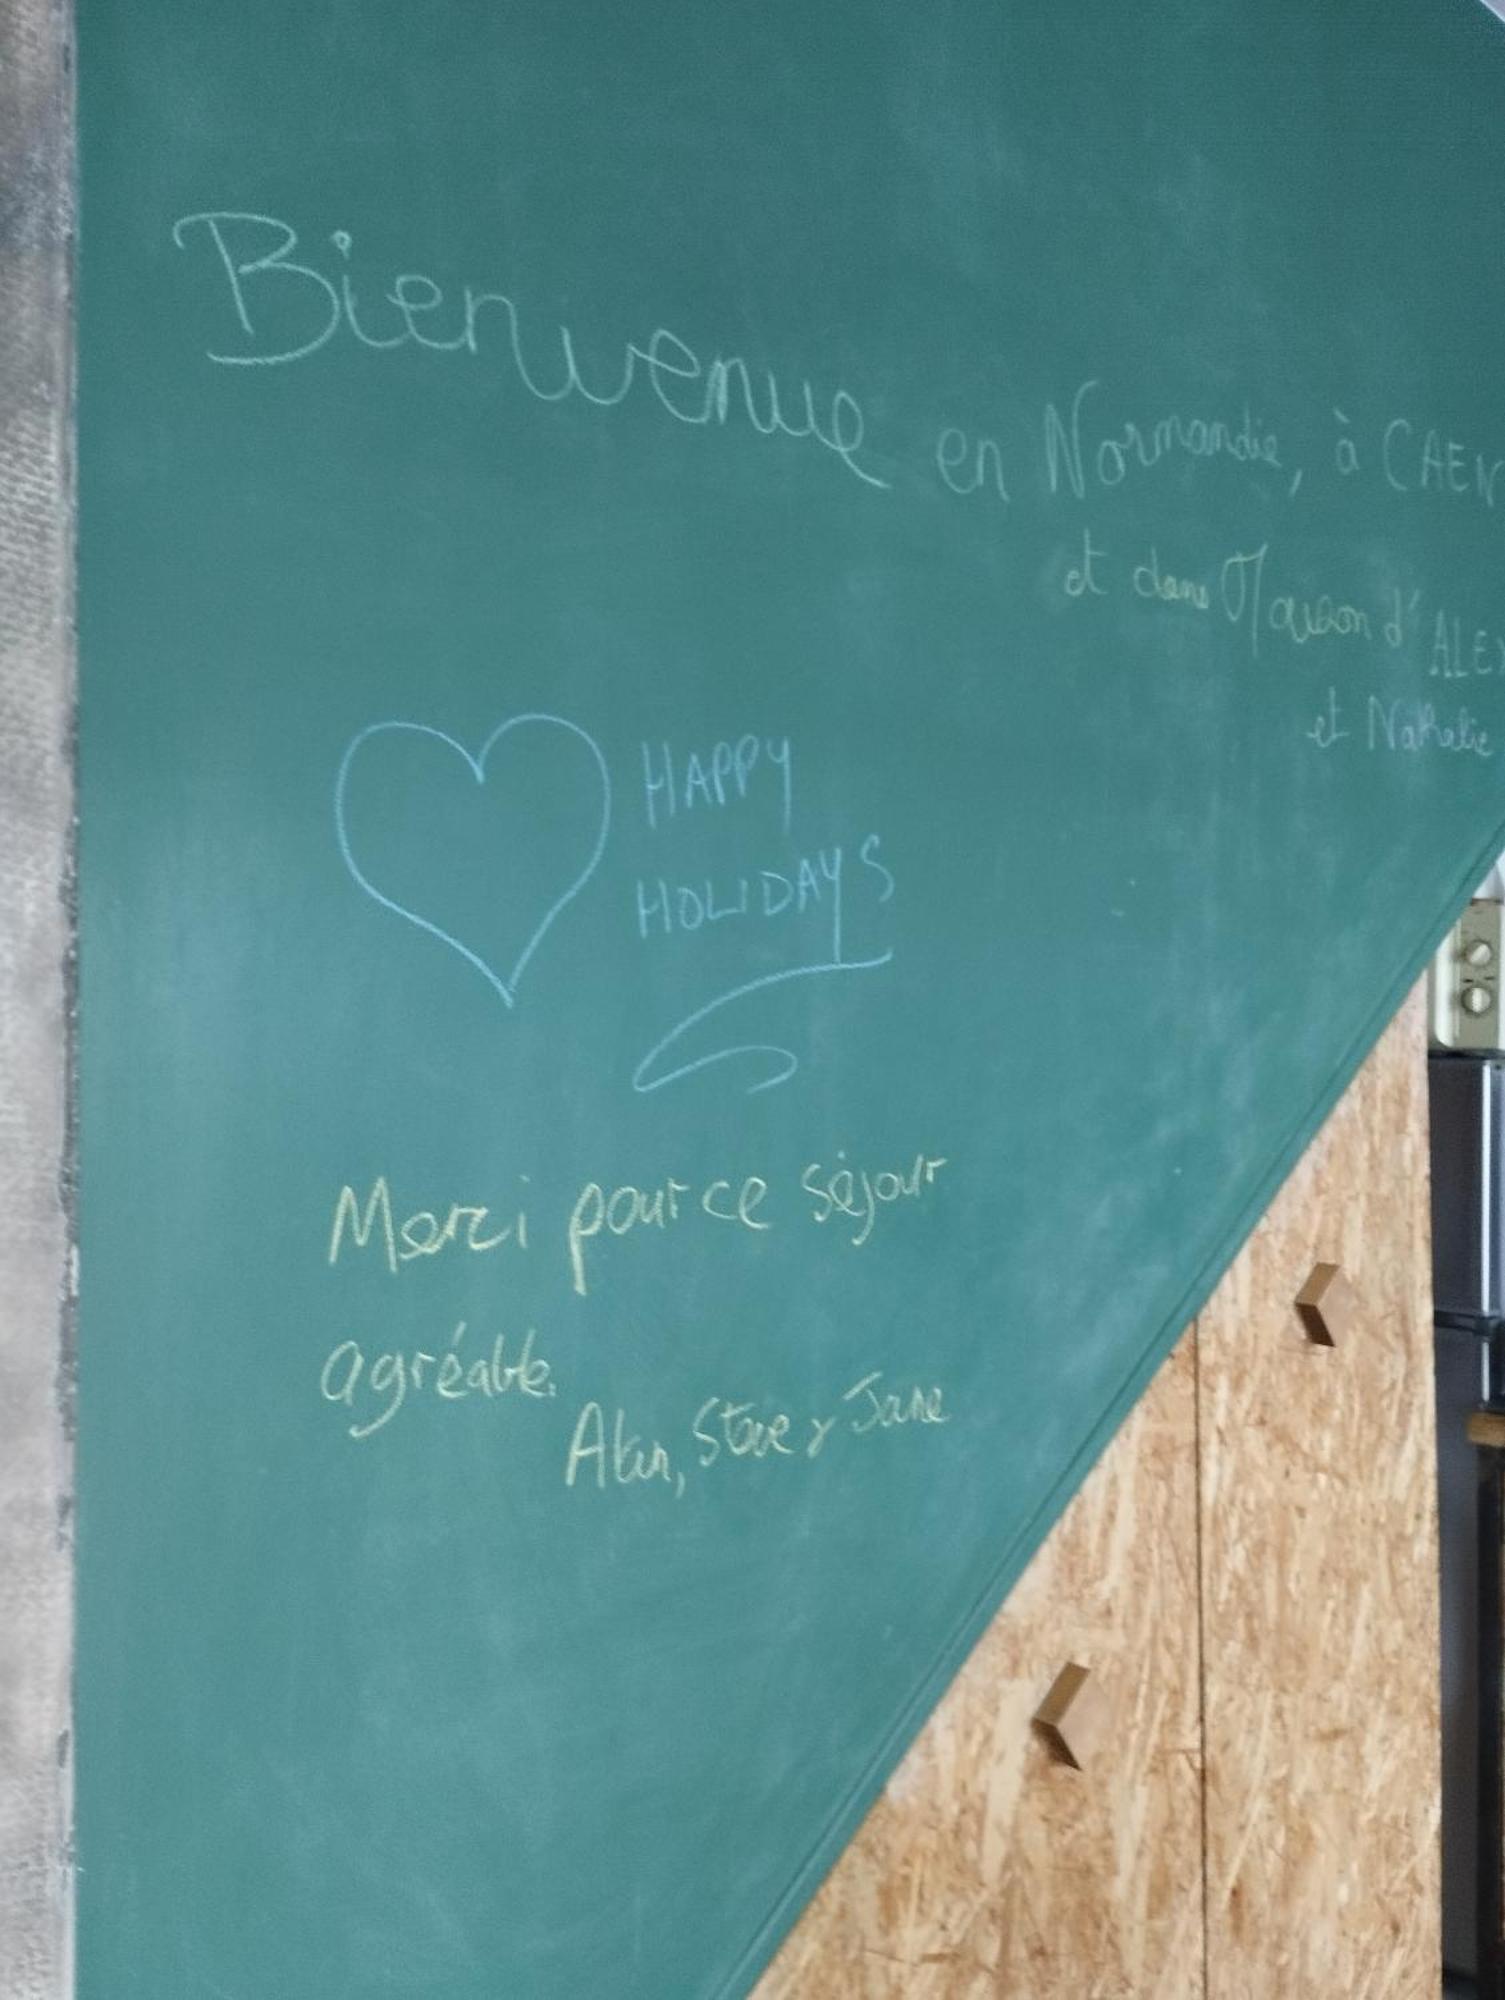 Bienvenue en Normandie, à CAEN
et dans Maison d'ALEX
et Nathalie
HAPPY
HOLIDAYS
Merci pour ce séjour
agréable.
Alan, Steve & Jane